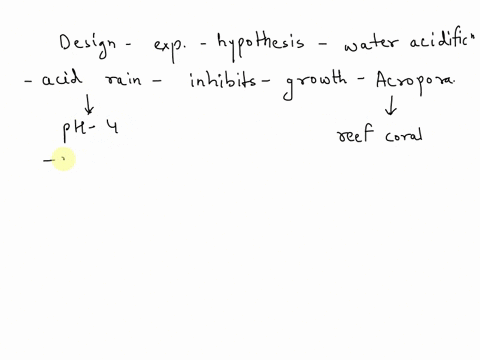 Design - exp. - hypothesis - water acidificⁿ
- acid rain - inhibits - growth - Acropora.
pH - 4 reef coral
-